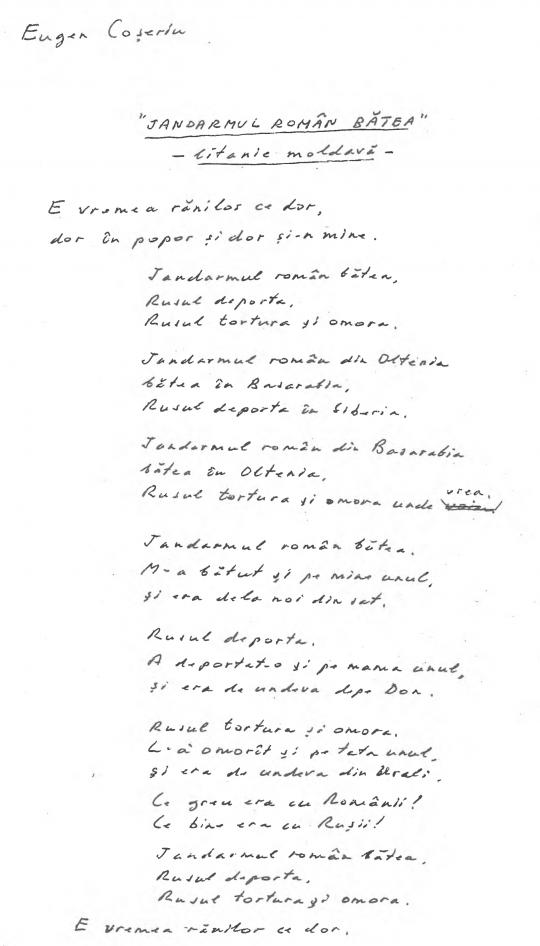 Eugen Coșeriu
"JANDARMUL ROMÂN BĂTEA"
- litanie moldavă -
E vremea rănilor ce dor,
dor în popor și dor și-n mine.
Jandarmul român bătea,
Rusul deporta,
Rusul tortura și omora.
Jandarmul român din Oltenia
bătea în Basarabia,
Rusul deporta în Siberia.
Jandarmul român din Basarabia
bătea în Oltenia,
Rusul tortura și omora unde vrea.
Jandarmul român bătea.
M-a bătut și pe mine unul,
și era dela noi din sat.
Rusul deporta.
A deportat-o și pe mama unul,
și era de undeva depe Don.
Rusul tortura și omora.
L-a omorît și pe tata unul,
și era de undeva din Urali.
Ce greu era cu Românii!
Ce bine era cu Rușii!
Jandarmul român bătea.
Rusul deporta,
Rusul tortura și omora.
E vremea rănilor ce dor.